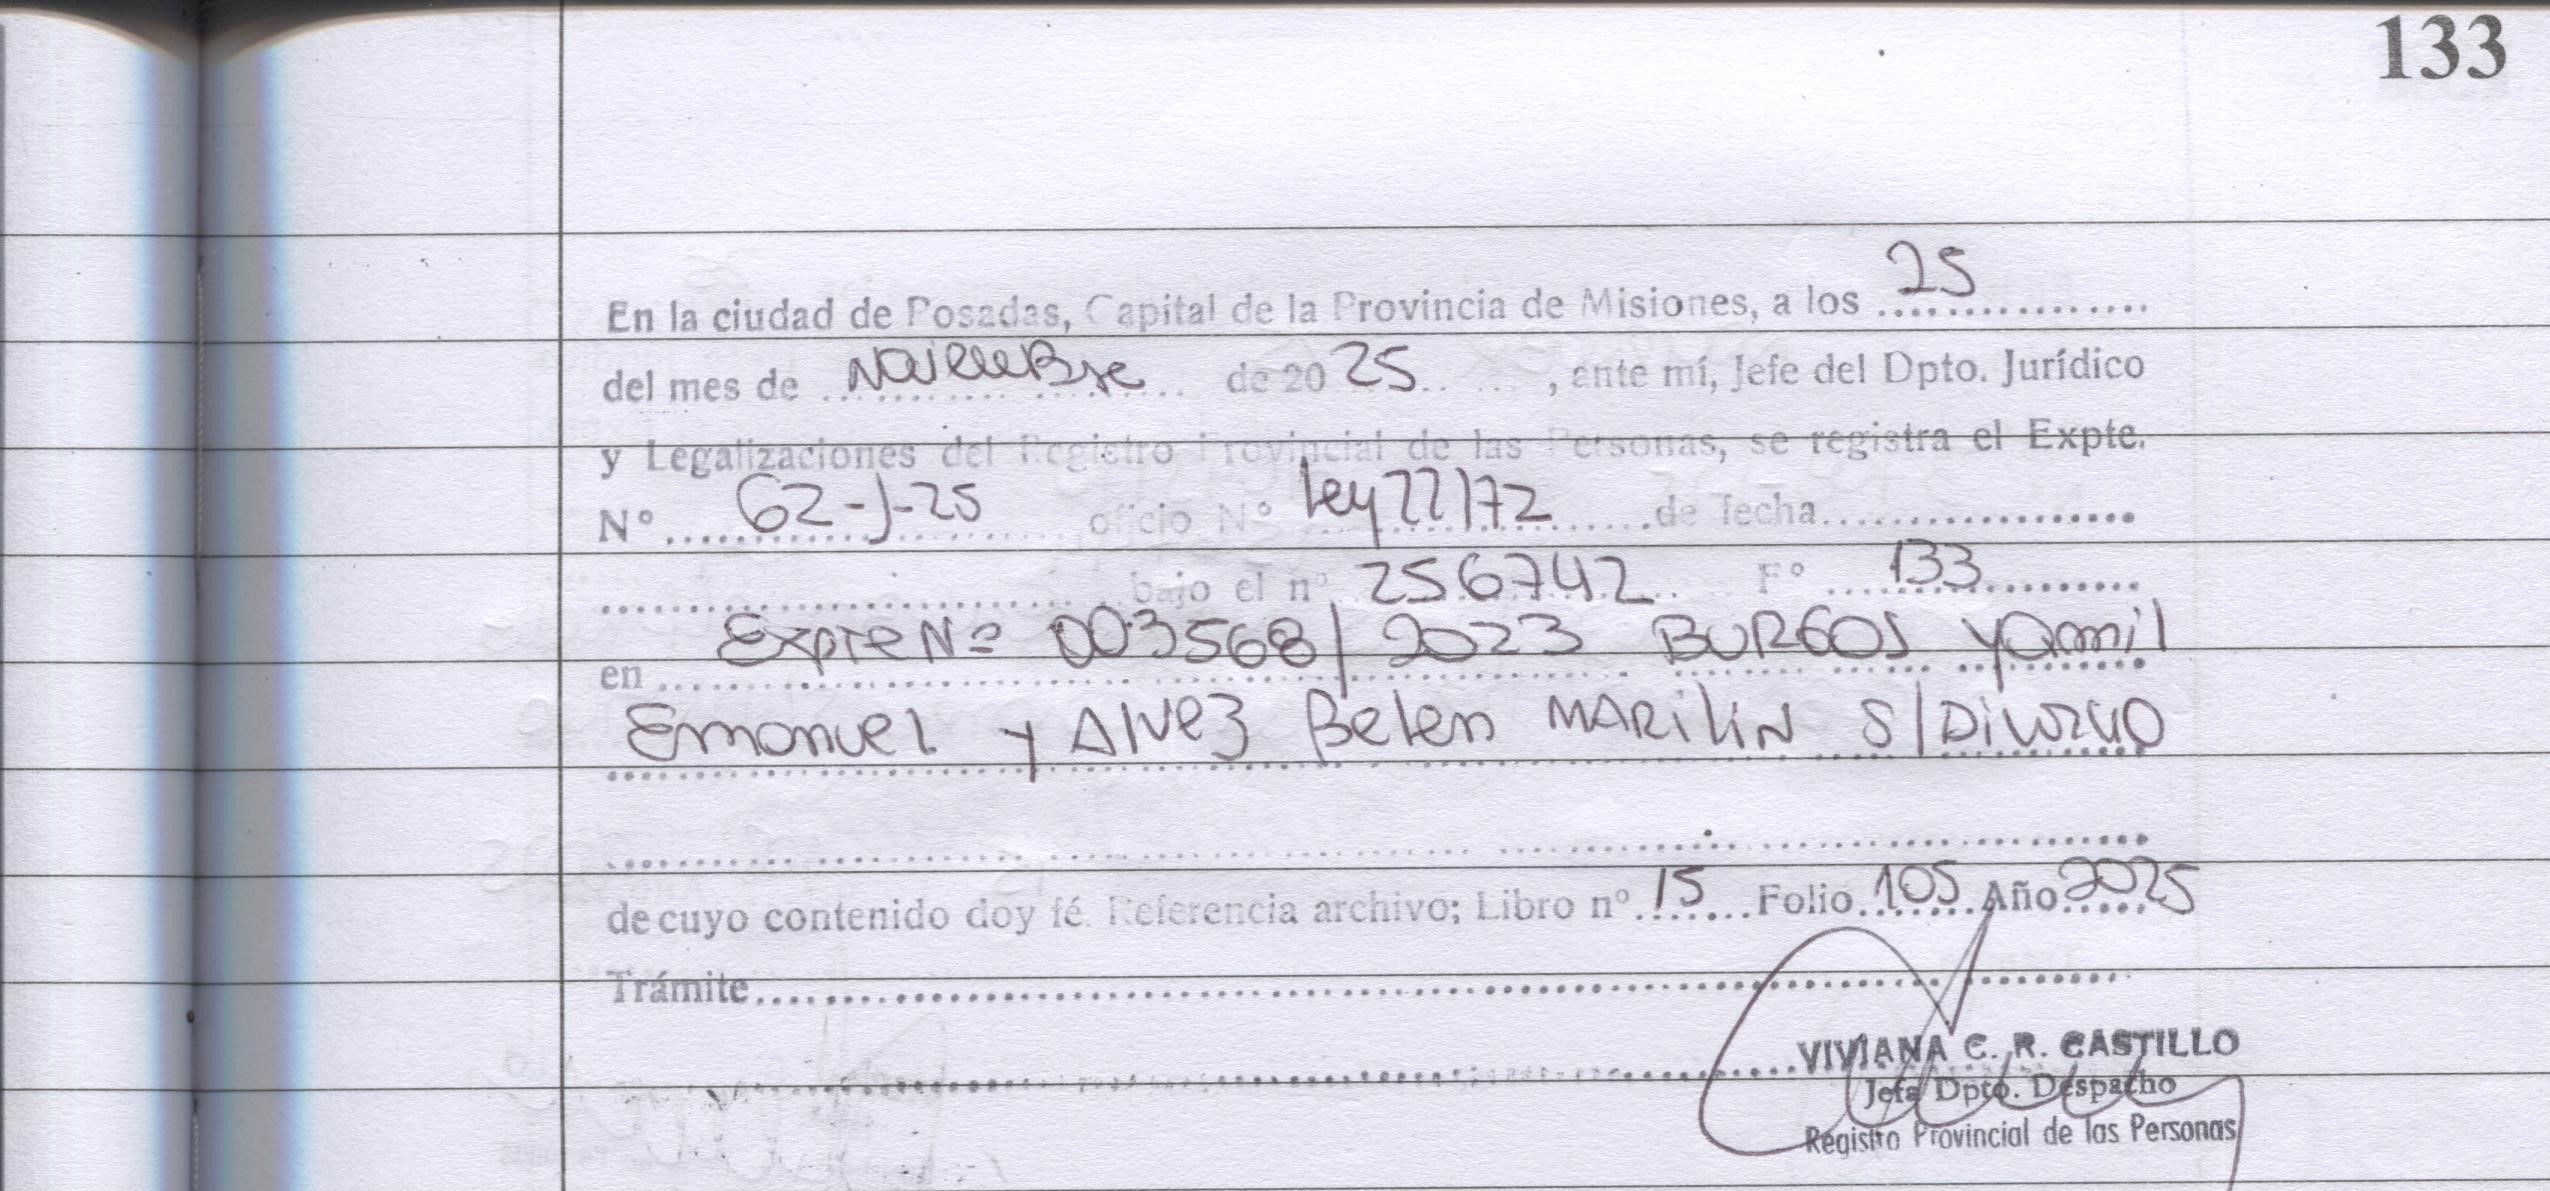 133
En la ciudad de Posadas, Capital de la Provincia de Misiones, a los 25
del mes de Noviembre de 2025, ante mí, Jefe del Dpto. Jurídico
y Legalizaciones del Registro Provincial de las Personas, se registra el Expte.
N° 62-J-25 oficio N° Ley 22172 de fecha
bajo el n° 256742 F° 133
en Expte Nº 003568/2023 BURGOS Yamil
Emanuel y Alvez Belen MARiliN S/Divorcio
de cuyo contenido doy fé. Referencia archivo; Libro nº 15 Folio 105 Año 2025
Trámite
VIVIANA C. R. CASTILLO
Jefa Dpto. Despacho
Registro Provincial de las Personas